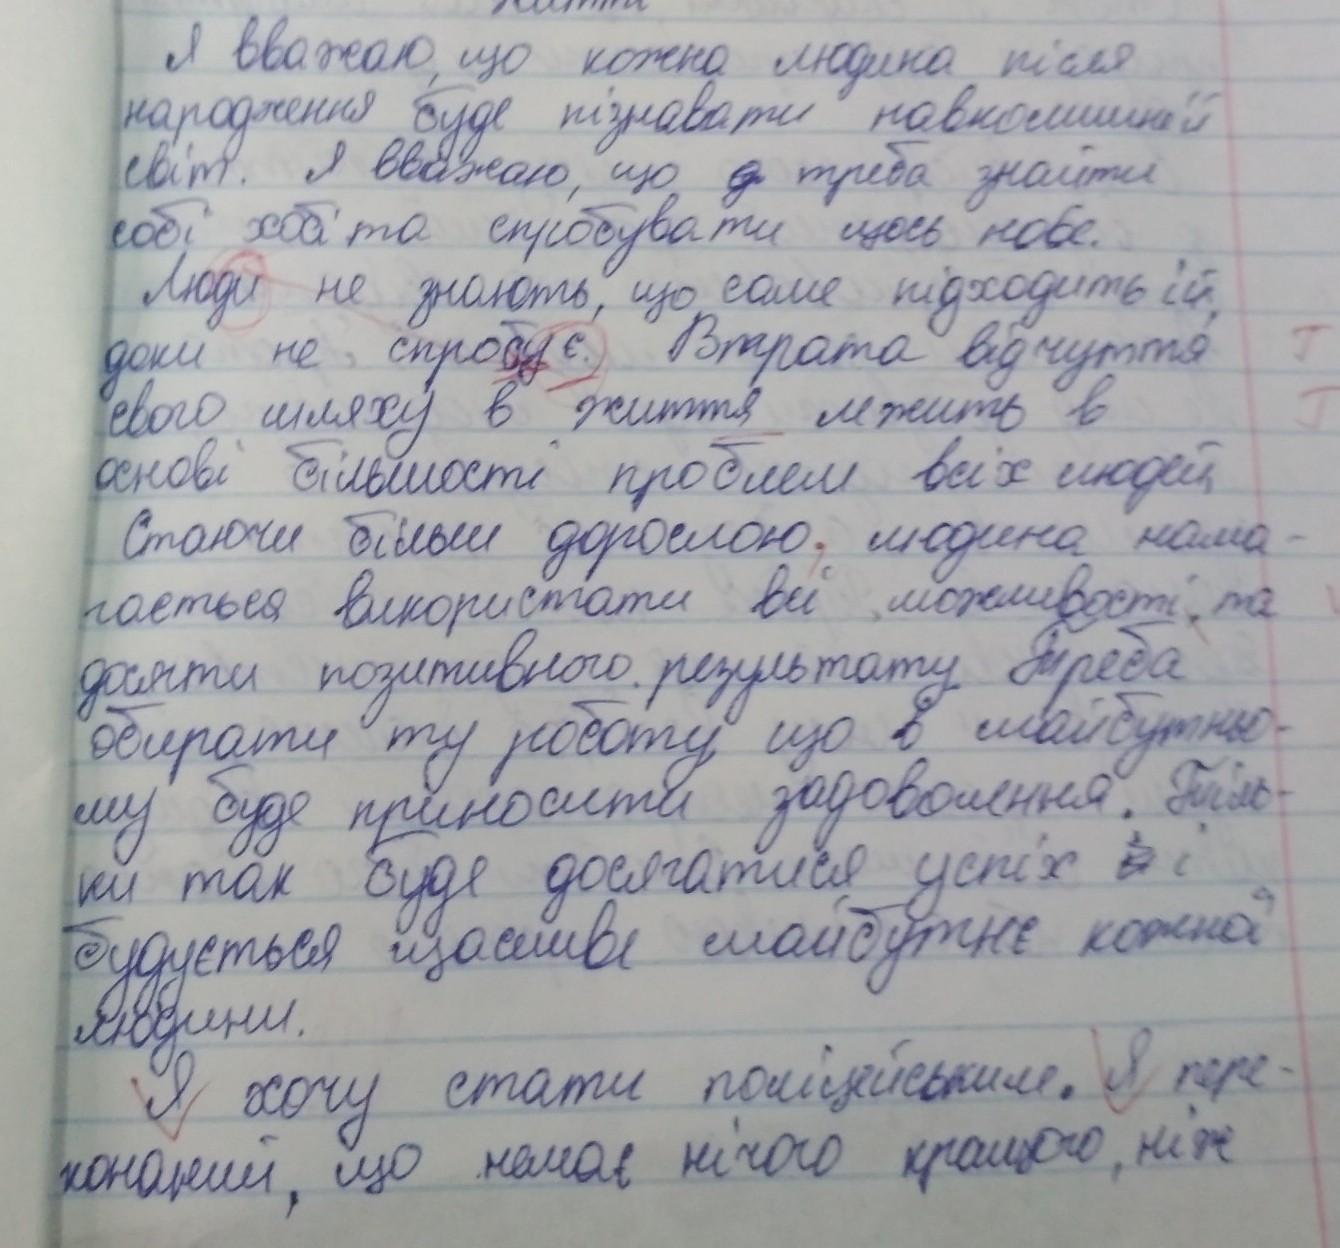 життя
Я вважаю, що кожна людина після
народження буде пізнавати навколишній
світ. Я вважаю, що треба знайти
собі хобі та спробувати щось нове.
Люди не знають, що саме підходить їй,
доки не спробує. Втрата відчуття
свого шляху в життя лежить в
основі більшості проблем всіх людей
Стаючи більш дорослою, людина нама-
гається використати всі можливості, та
досягти позитивного результату Треба
обирати ту роботу, що в майбутньо-
му буде приносити задоволення. Тіль-
ки так буде досягатися успіх і
будується щасливе майбутнє кожної
людини.
Я хочу стати поліцейським. Я пере-
конаний, що немає нічого кращого, ніж